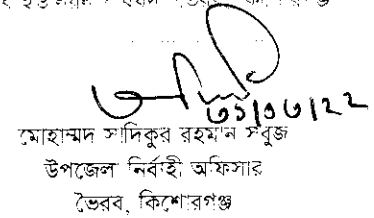 ৩১/০৩/২২
মোহাম্মদ সাদিকুর রহমান সবুজ
উপজেলা নির্বাহী অফিসার
ভৈরব, কিশোরগঞ্জ